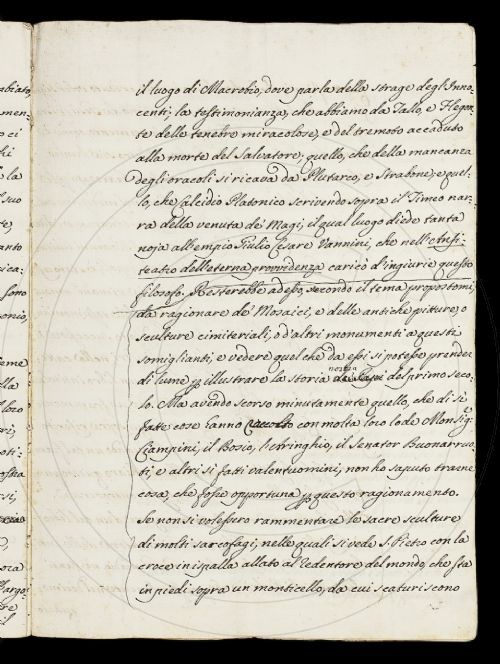 il luogo di Macrobio, dove parla della strage degl'Inno-
centi; la testimonianza, che abbiamo da Tallo, e Flegon-
te delle tenebre miracolose, e del tremoto accaduto
alla morte del Salvatore; quello, che della mancanza
degli oracoli si ricava da Plutarco, e Strabone; e quel-
lo, che Calcidio Platonico scrivendo sopra il Timeo nar-
ra della venuta de' Magi; il qual luogo diede tanta
noja all'empio Giulio Cesare Vannini, che nell'Anfi-
teatro dell'eterna provvidenza caricò d'ingiurie questo
filosofo. Resterebbe adesso, secondo il tema propostomi,
da ragionare de' Mosaici, e delle antiche pitture, o
sculture cimiteriali, o d'altri monumenti a questi
somiglianti, e vedere quel che da essi si potesse prender
di lume per illustrare la storia nostra del primo seco-
lo. Ma avendo scorso minutamente quello, che di sì
fatte cose hanno con molta loro lode Monsig.
Ciampini, il Bosio, l'Aringhio, il Senator Buonarruo-
ti, e altri sì fatti valentuomini, non ho saputo trarne
cosa, che fosse opportuna per questo ragionamento.
Se non si volessero rammentare le sacre sculture
di molti sarcofagi, nelle quali si vede S. Pietro con la
croce in ispalla allato al Redentore del mondo, che sta
in piedi sopra un monticello, da cui scaturiscono